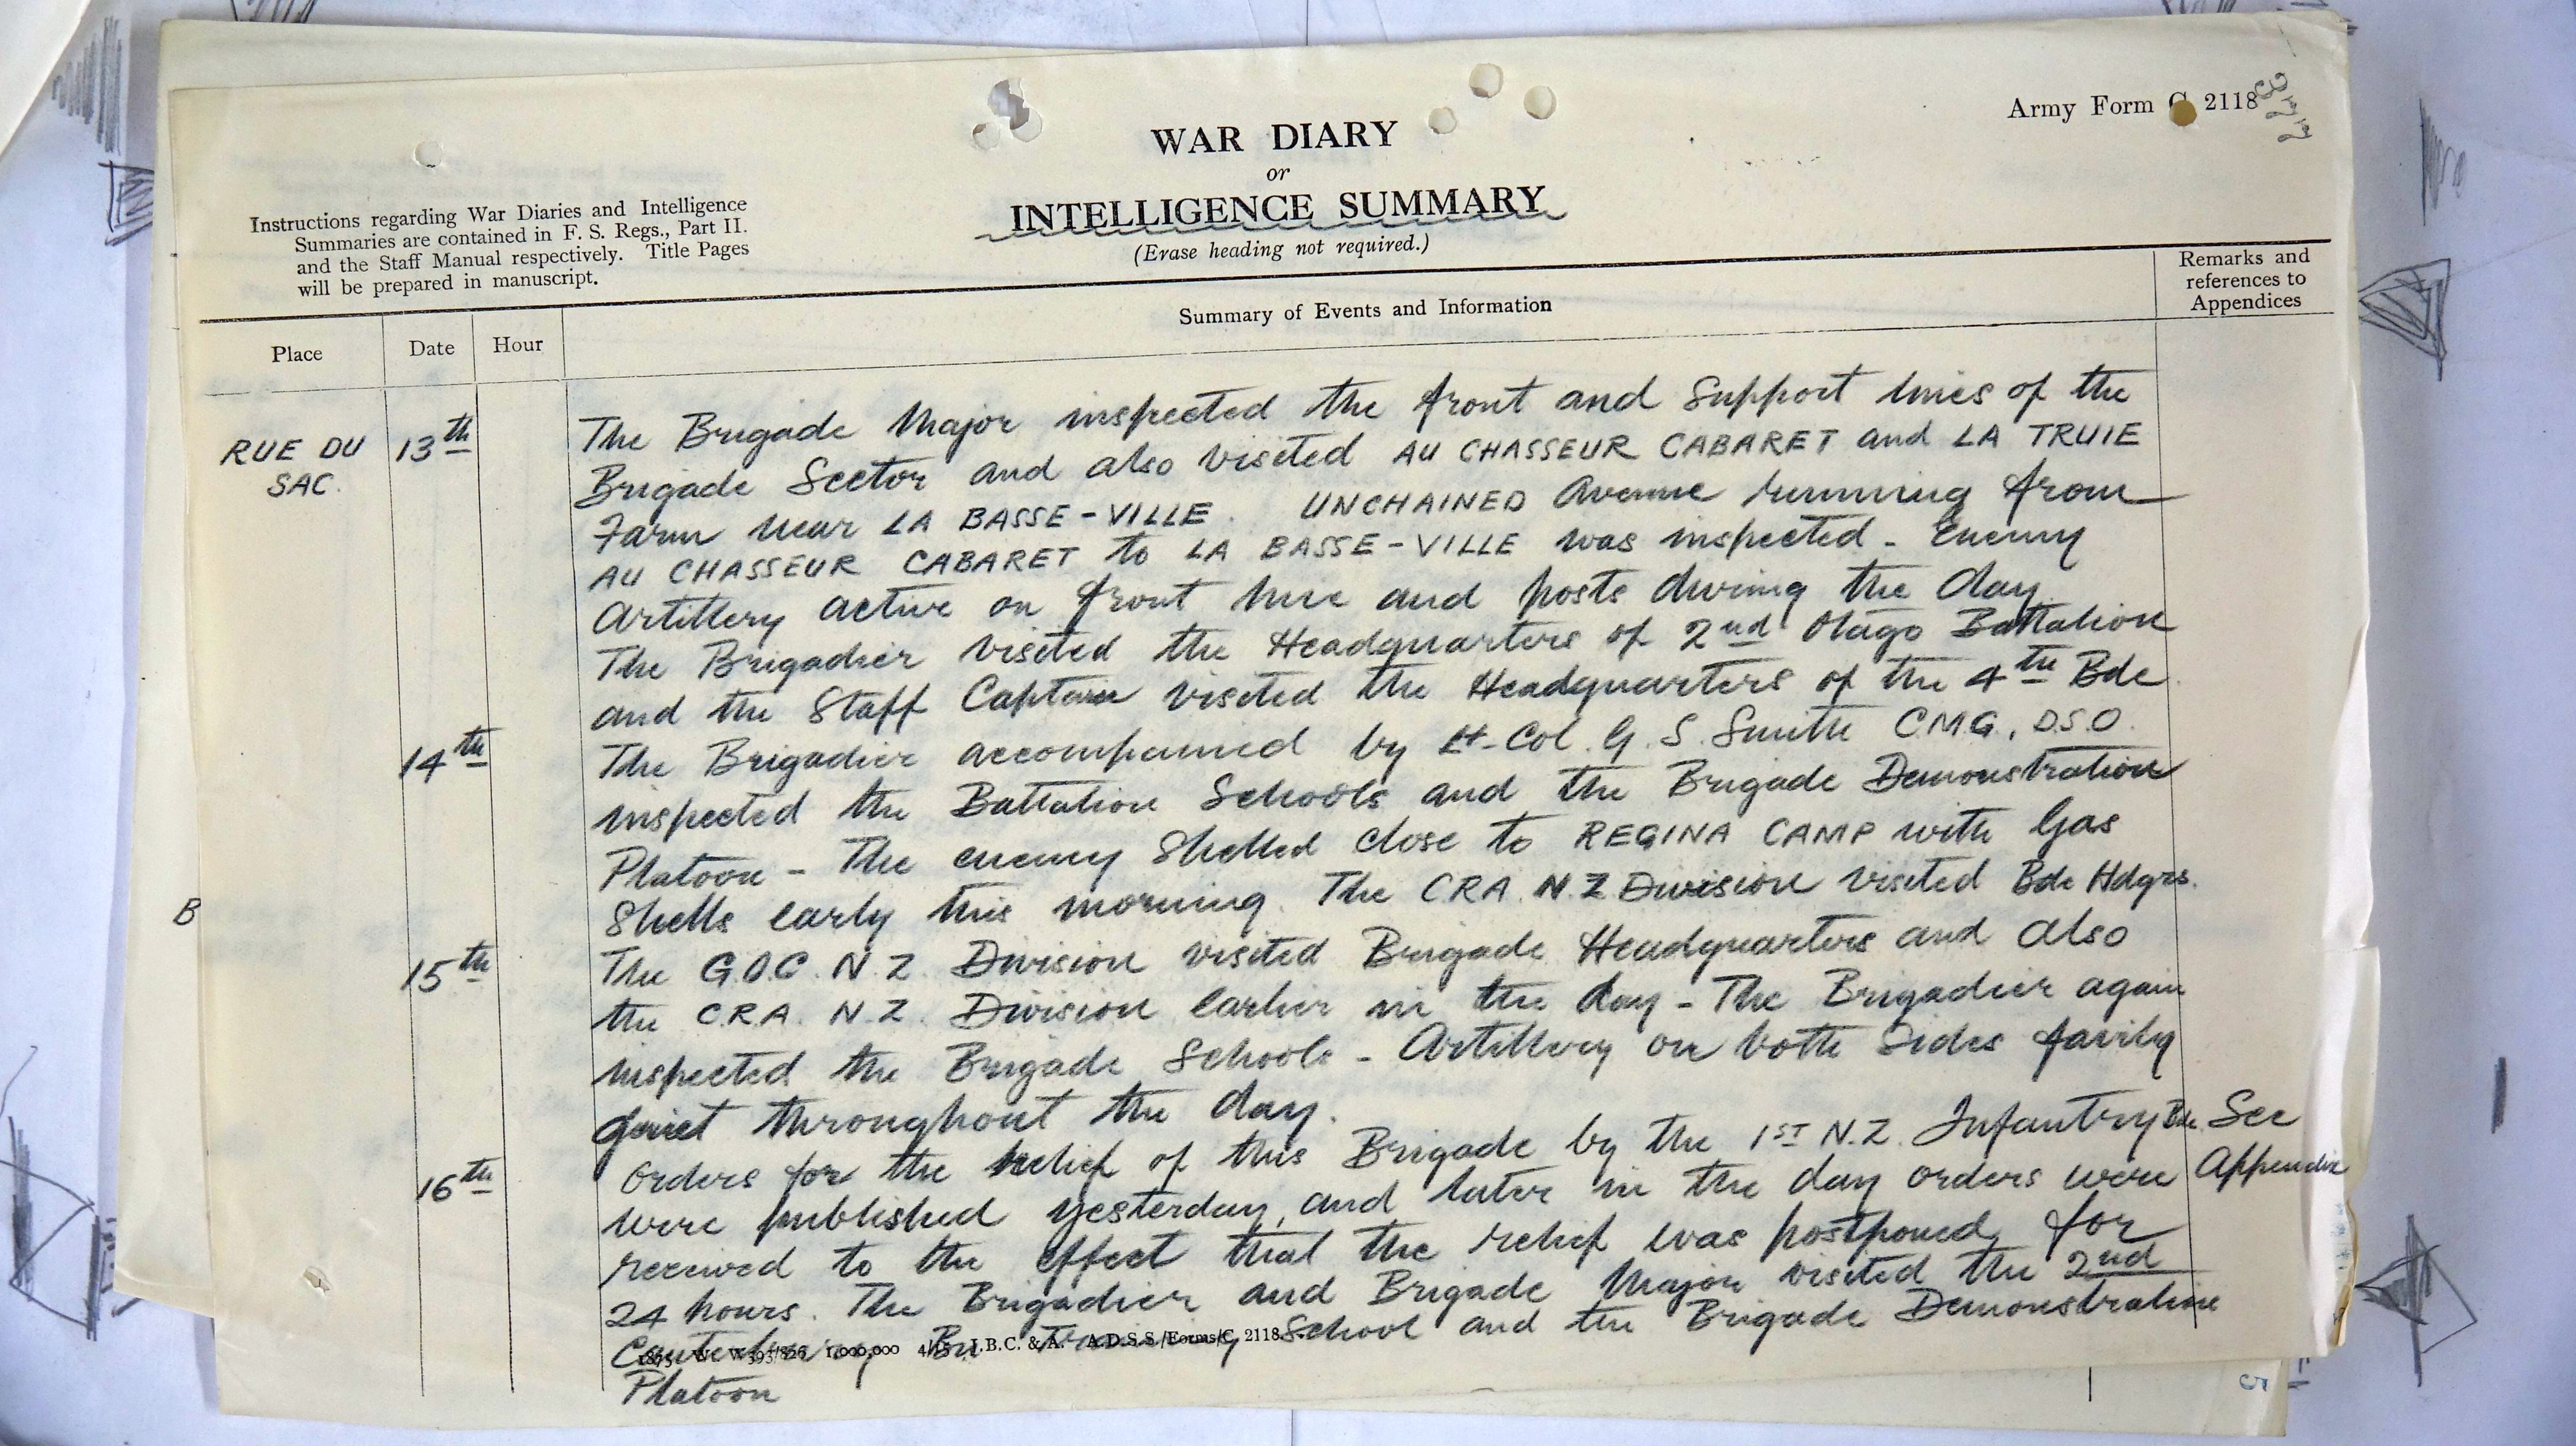 Army Form C. 2118
WAR DIARY
or
INTELLIGENCE SUMMARY
(Erase heading not required.)
Instructions regarding War Diaries and Intelligence
Summaries are contained in F. S. Regs., Part II.
and the Staff Manual respectively. Title Pages
will be prepared in manuscript.
Remarks and
references to
Appendices
Summary of Events and Information
Place Date Hour
RUE DU SAC. 13th The Brigade Major inspected the front and Support lines of the
Brigade Sector and also visited AU CHASSEUR CABARET and LA TRUIE
Farm near LA BASSE-VILLE. UNCHAINED Avenue running from
AU CHASSEUR CABARET to LA BASSE-VILLE was inspected - Enemy
Artillery active on front line and posts during the day
The Brigadier visited the Headquarters of 2nd Otago Battalion
and the Staff Captain visited the Headquarters of the 4th Bde.
14th The Brigadier accompanied by Lt-Col. G. S. Smith C.M.G., D.S.O.
inspected the Battalion Schools and the Brigade Demonstration
Platoon - The enemy Shelled close to REGINA CAMP with Gas
Shells early this morning. The C.R.A. N.Z Division visited Bde Hdqrs.
B
15th The G.O.C. N.Z. Division visited Brigade Headquarters and also
the C.R.A. N.Z. Division earlier in the day - The Brigadier again
inspected the Brigade Schools - Artillery on both Sides fairly
quiet throughout the day.
16th Orders for the relief of this Brigade by the 1ST N.Z. Infantry Bde. See
were published yesterday, and later in the day orders were Appendix
received to the effect that the relief was postponed for
24 hours. The Brigadier and Brigade Major visited the 2nd
Canterbury Bn Training School and the Brigade Demonstration
Platoon
1875 W. W593/826 1,000,000 4/15 J.B.C. & A. A.D.S.S./Forms/C. 2118.